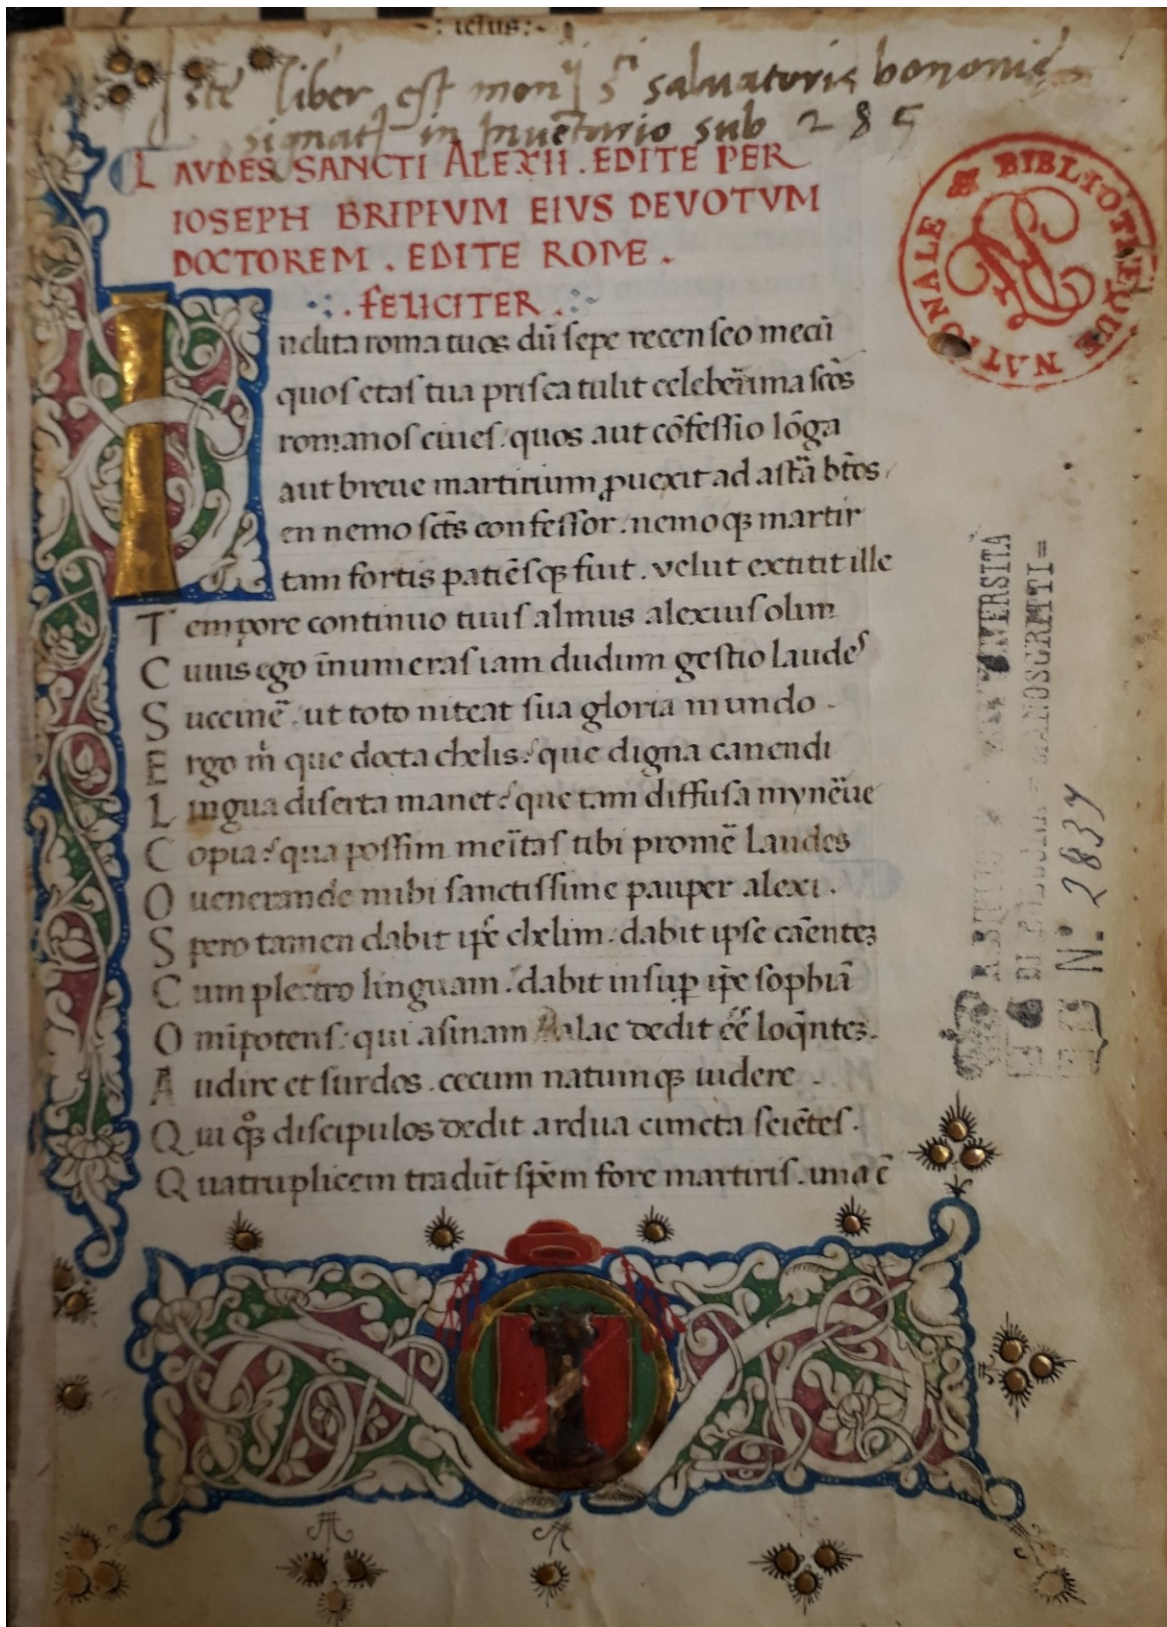 -: iesus :-
Iste liber est monrij sti salvatoris bononię
signatꝰ in Inuētario sub 285
LAVDES SANCTI ALEXII . EDITE PER
IOSEPH BRIPIVM EIVS DEVOTVM
DOCTOREM . EDITE ROME .
. FELICITER .
Inclita roma tuos dū sepe recenseo mecū
quos etas tua prisca tulit celeberīma scōs
romanos ciues. quos aut cōfessio lōga
aut breue martirium ꝓuexit ad astrā btōs
en nemo scts confessor . nemoqꝫ martir
tam fortis patiēsqꝫ fuit . velut extitit ille
Tempore continuo tuus almus alexius olim
Cuius ego īnumeras iam dudum gestio laudes
Succinē . ut toto niteat sua gloria mundo .
Ergo m̄ que docta chelis? que digna canendi
Lingua diserta manet? que tam diffusa mynēue
Copia? qua possim meītas tibi promē laudes
O uenerande mihi sanctissime pauper alexi .
Spero tamen dabit ip̄e chelim. dabit ipse cāenteꝫ
Cum plectro linguam. dabit insuꝑ ip̄e sophiā
Omīpotens: qui asinam Balac dedit ēē loq̄nteꝫ.
Audire et surdos . cecum natumqꝫ uidere .
Qui qꝫ discipulos dedit ardua cuncta sciētes.
Quatruplicem tradūt spēm fore martiris. una ē
BIBLIOTHEQUE NATIONALE
MANOSCRITTI=
N: 2837